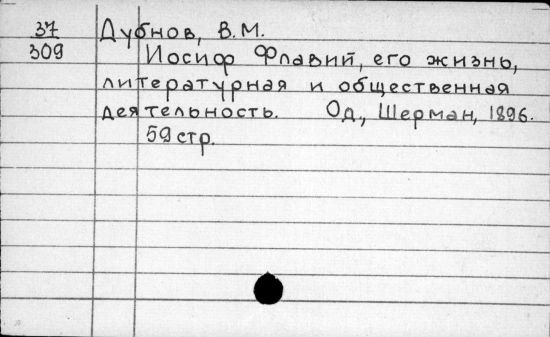 37 Дубнов, В.М.
309 Иосиф Флавий, его жизнь,
литературная и общественная
деятельность. Од., Шерман, 1896.
59 стр.